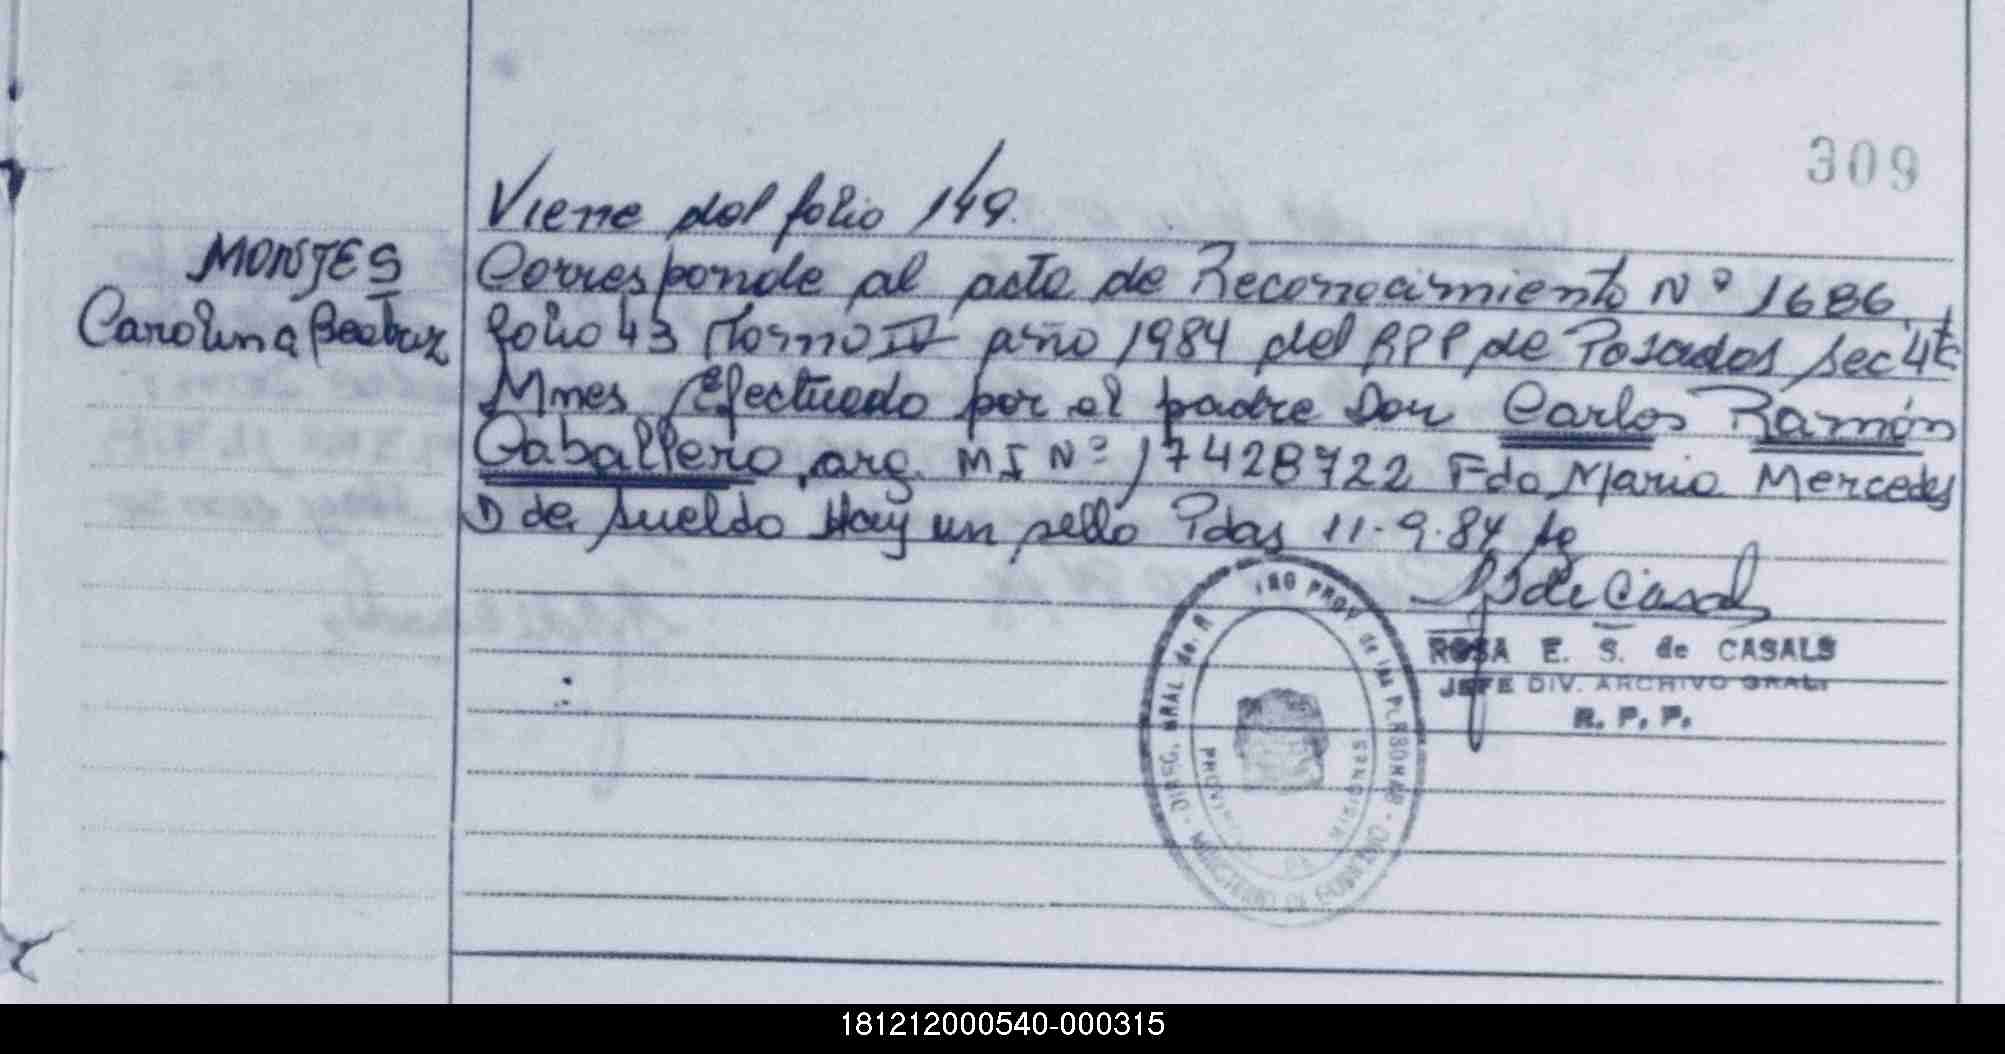 309
Viene del folio 149.
MONTES
Carolina Beatriz
Corresponde al acta de Reconocimiento Nº 1686,
folio 43 Tomo IV año 1984 del RPP de Posadas Sec 4ta
Mnes Efectuado por el padre Don Carlos Ramón
Caballero, arg. M I Nº 17428722 Fdo Maria Mercedes
D de Sueldo Hay un sello Pdas 11-9-84
S de Casals
ROSA E. S. de CASALS
JEFE DIV. ARCHIVO GRAL.
R. P. P.
PROV. de las PERSONAS - MINISTERIO DE GOBIERNO - DIREC. GRAL de.
PROVINCIA DE MISIONES
181212000540-000315